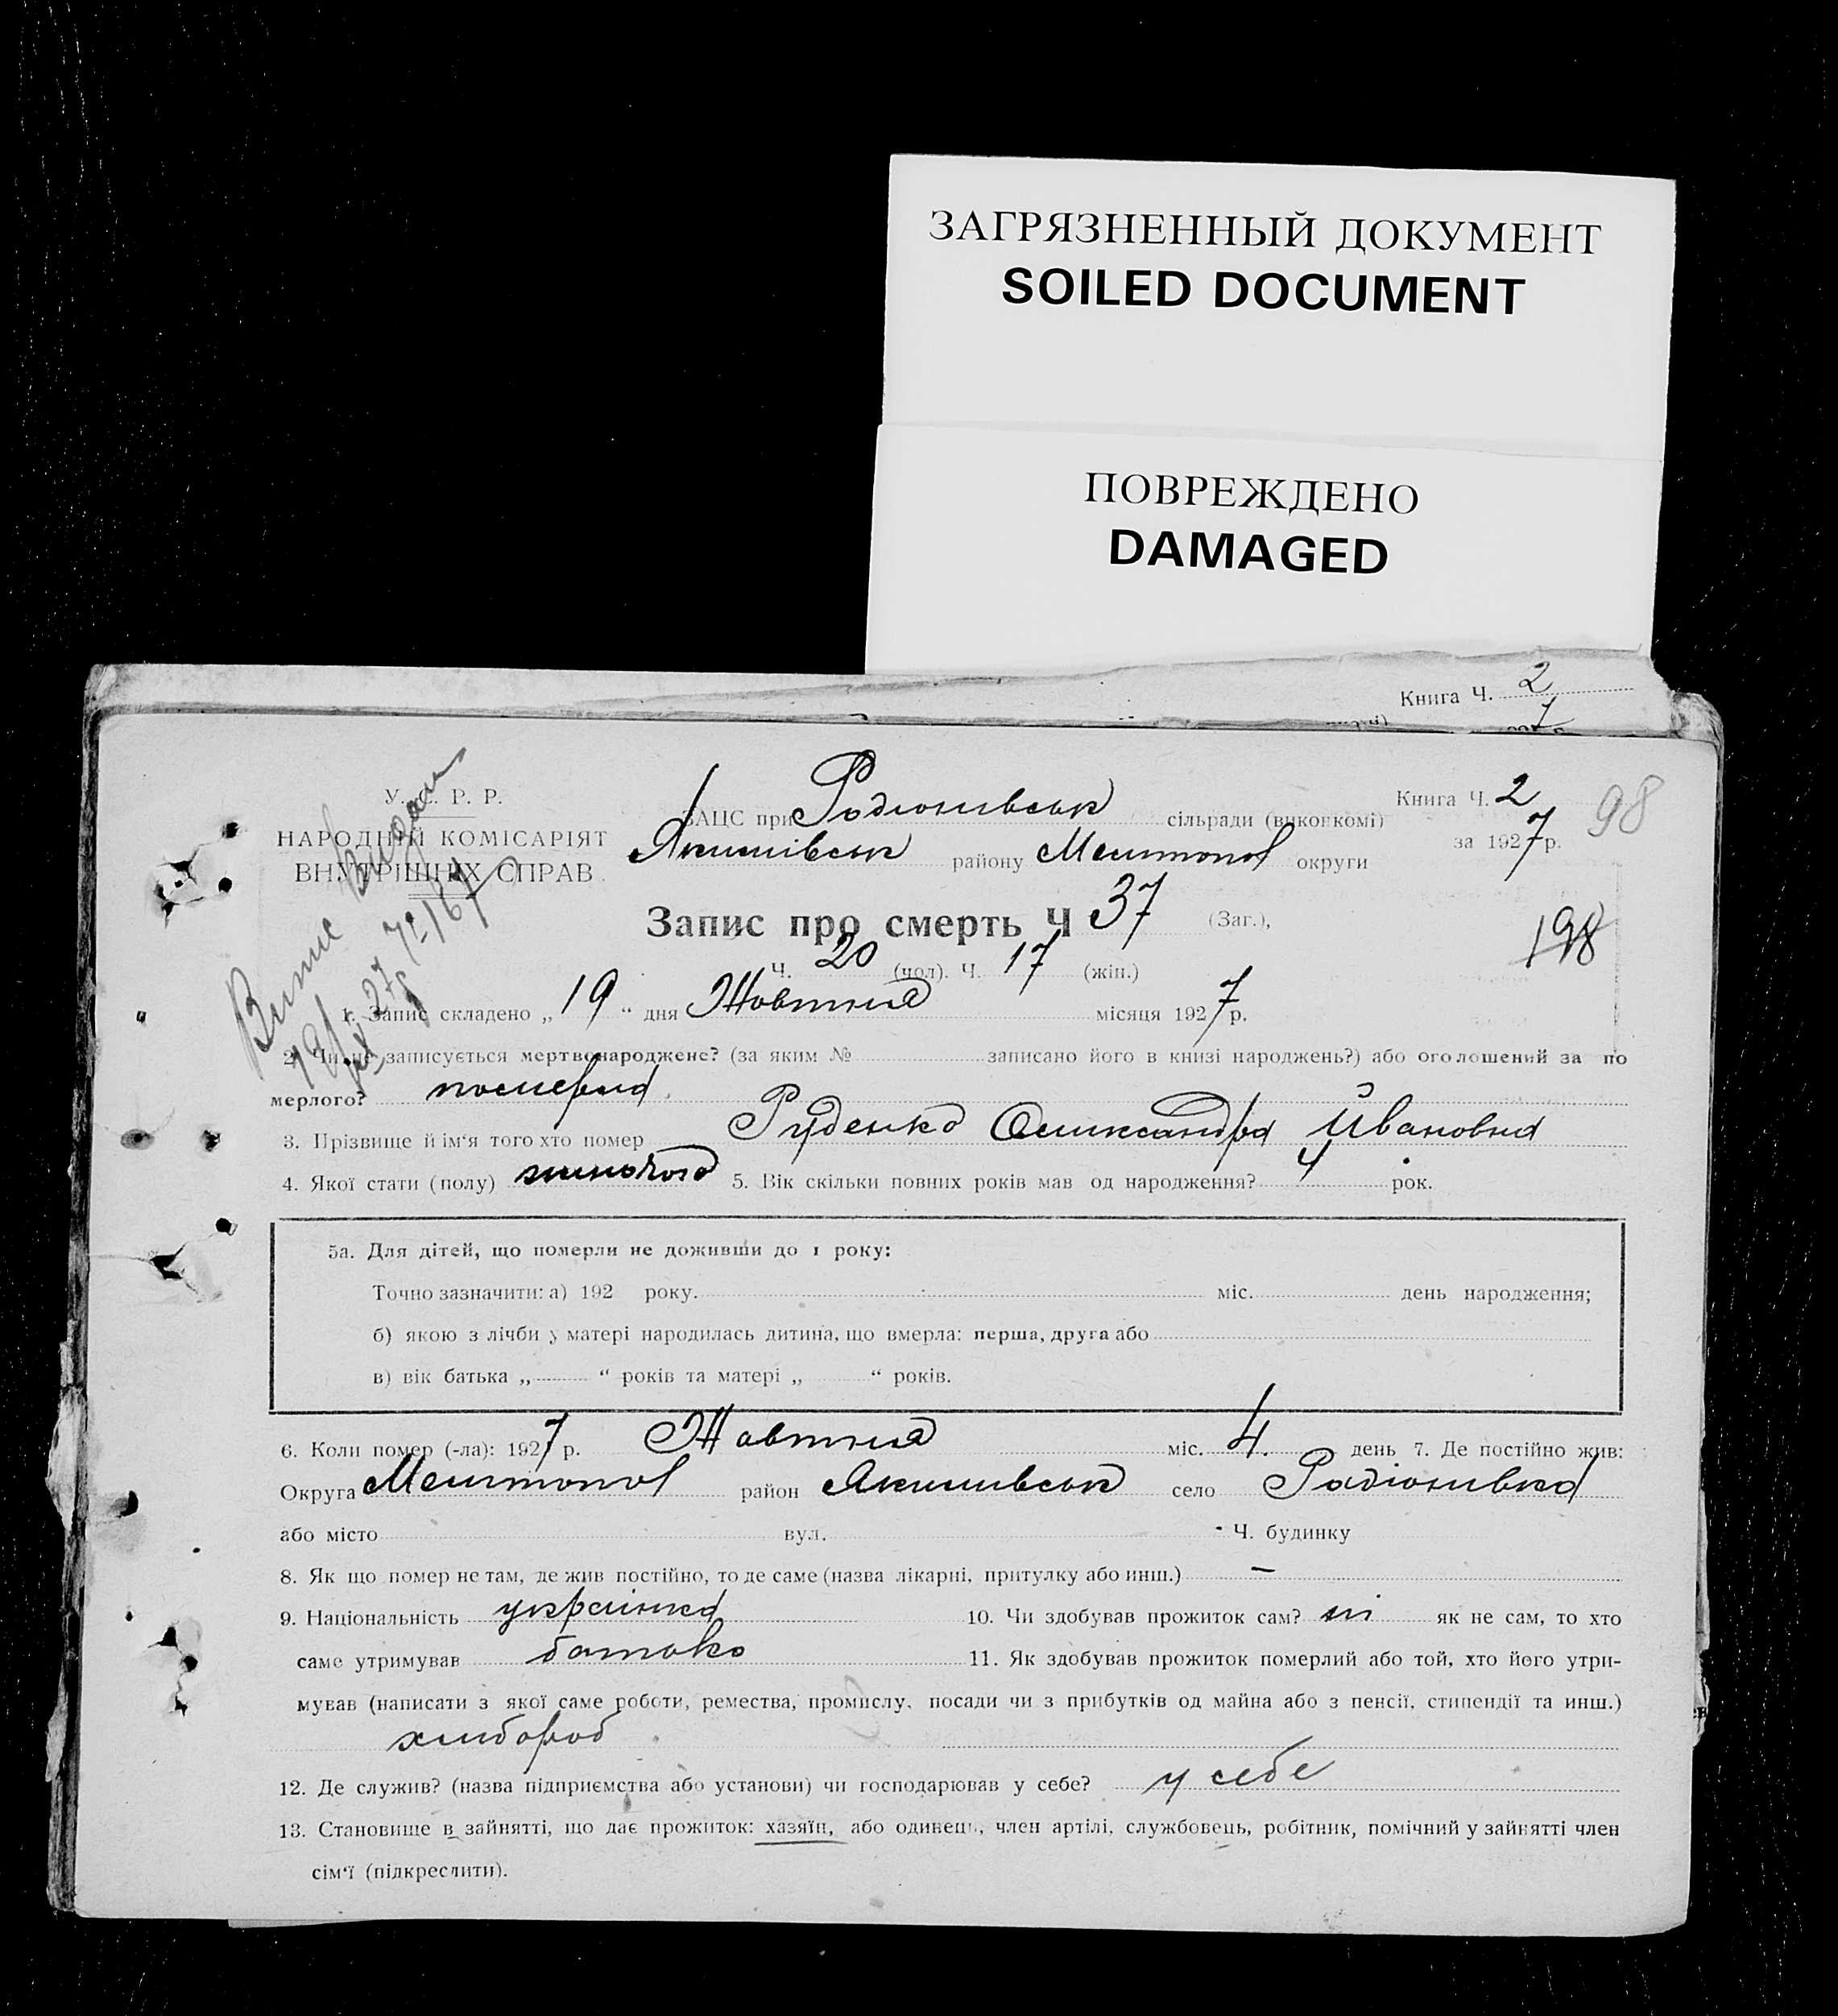 ЗАГРЯЗНЕННЫЙ ДОКУМЕНТ
SOILED DOCUMENT
ПОВРЕЖДЕНО
DAMAGED
Книга Ч. 2
У. С. Р. Р.
НАРОДНІЙ КОМІСАРІЯТ
ВНУТРІШНІХ СПРАВ
ЗАЦС при Родіонивськ сільради (виконкомі)
Якимівськ району Мелитопол округи
Книга Ч. 2
за 1927 р.
98
Запис про смерть Ч 37 (Заг.),
198
Ч. 20 (чол). Ч. 17 (жін.)
1. Запис складено „19“ дня Жовтня місяця 1927 р.
2. Чи не записується мертвонароджене? (за яким № записано його в книзі народжень?) або оголошений за по
мерлого? померла
3. Прізвище й ім‘я того хто помер Руденко Олександра Ивановна
4. Якої стати (полу) жиночого 5. Вік скільки повних років мав од народження? 4 рок.
5а. Для дітей, що померли не доживши до 1 року:
Точно зазначити: а) 192 року. міс. день народження;
б) якою з лічби у матері народилась дитина, що вмерла: перша, друга або
в) вік батька „ “ років та матері „ “ років.
6. Коли помер (-ла): 1927 р. Жовтня міс. 4. день 7. Де постійно жив:
Округа Мелитопол район Якимивськ село Радіонивка
або місто вул. Ч. будинку
8. Як що помер не там, де жив постійно, то де саме (назва лікарні, притулку або инш.) —
9. Національність українка 10. Чи здобував прожиток сам? ні як не сам, то хто
саме утримував батько 11. Як здобував прожиток померлий або той, хто його утри-
мував (написати з якої саме роботи, ремества, промислу, посади чи з прибутків од майна або з пенсії, стипендії та инш.)
хлибороб
12. Де служив? (назва підприємства або установи) чи господарював у себе? у себе
13. Становище в зайнятті, що дає прожиток: хазяїн, або одинець, член артілі, службовець, робітник, помічний у зайнятті член
сім‘ї (підкреслити).